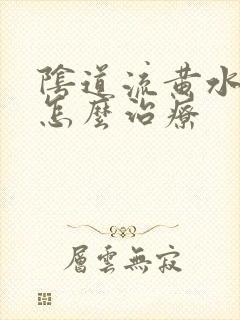 陰道流黃水
怎麼治療
層雲無寂